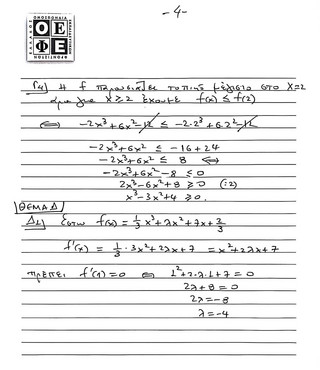 -4-
ΟΕ
ΦΕ
Γ4) Η f παρουσιάζει τοπικό μέγιστο στο x=2
άρα για x≥2 έχουμε f(x) ≤ f(2)
⟺ -2x³+6x²-12 ≤ -2·2³+6·2²-12
-2x³+6x² ≤ -16+24
-2x³+6x² ≤ 8 ⟺
-2x³+6x²-8 ≤ 0
2x³-6x²+8 ≥ 0 (:2)
x³-3x²+4 ≥ 0.
ΘΕΜΑ Δ
Δ1) έστω f(x) = 1/3 x³+λx²+7x+2/3
f'(x) = 1/3·3x²+2λx+7 = x²+2λx+7
πρέπει f'(1)=0 ⟺ 1²+2·λ·1+7=0
2λ+8=0
2λ=-8
λ=-4